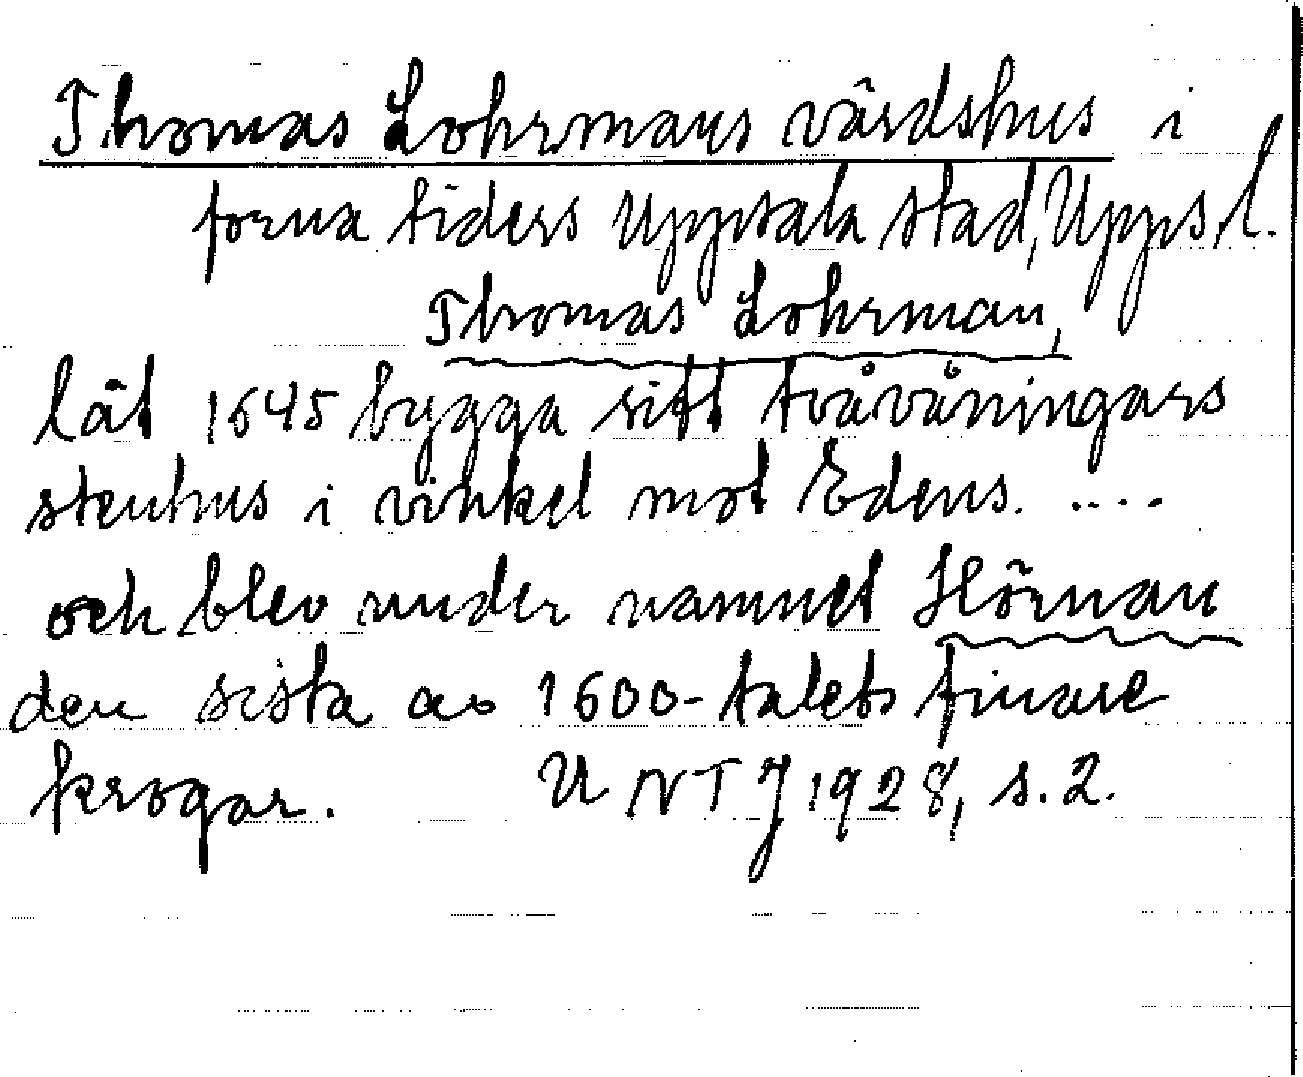 Thomas Lohrmans värdshus i
forna tiders Uppsala stad, Upps. l.
Thomas Lohrman,
lät 1645 bygga sitt tvåvåningars
stenhus i vinkel mot Edens. ....
och blev under namnet Hörnan
den sista av 1600-talets finare
krogar. U N T J 1928, s. 2.